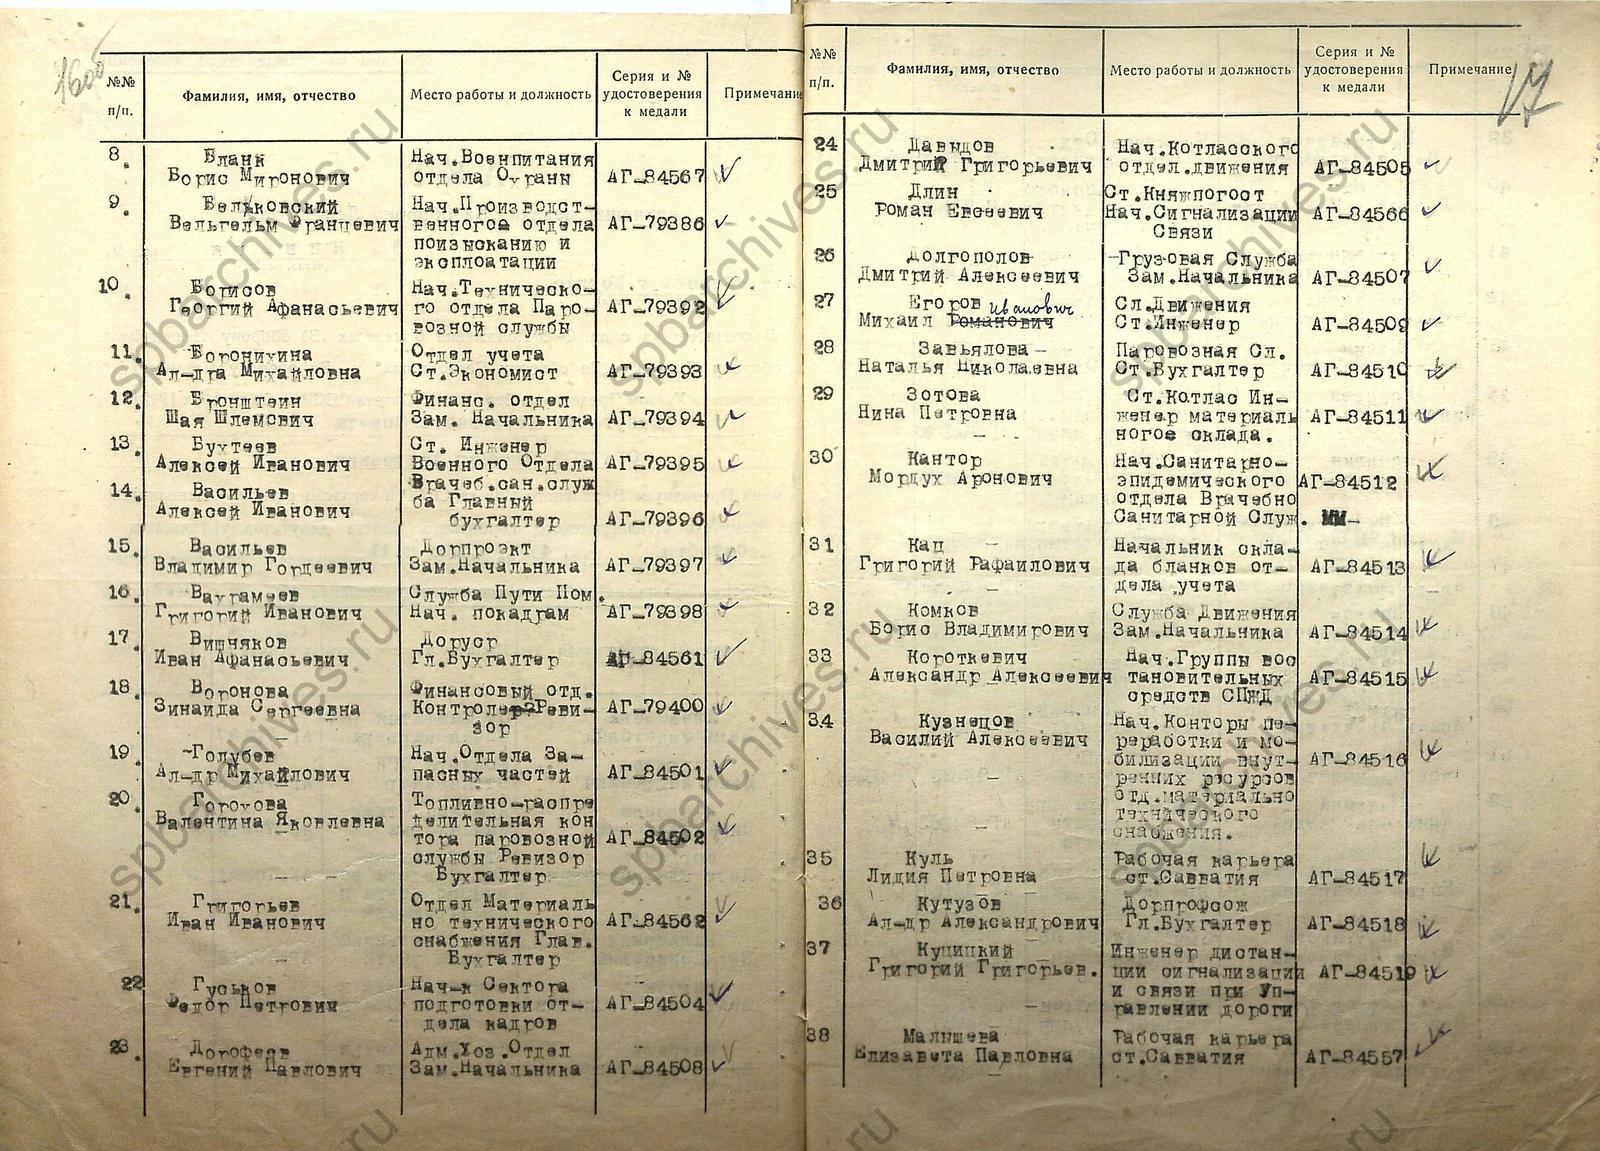 №№
п/п.
Фамилия, имя, отчество
Место работы и должность
Серия и №
удостоверения
к медали
Примечание
8. Бланк Нач.Военпитания
Борис Миронович отдела Охраны АГ-84567
9. Бельковский Нач.Производст-
Вельгельм Францевич венного отдела АГ-79386
поизысканию и
эксплоатации
10. Борисов Нач.Техническо-
Георгий Афанасьевич го отдела Паро- АГ-79392
возной службы
11. Воронихина Отдел учета
Ал-дра Михайловна Ст.Экономист АГ-79393
12. Бронштеин Финанс. отдел
Шая Шлемович Зам. Начальника АГ-79394
13. Бухтеев Ст. Инженер
Алексей Иванович Военного Отдела АГ-79395
14. Васильев Врачеб.сан.служ
Алексей Иванович ба Главный
бухгалтер АГ-79396
15. Васильев Дорпроэкт
Владимир Гордеевич Зам.Начальника АГ-79397
16. Вахрамеев Служба Пути Пом.
Григорий Иванович Нач. покадрам АГ-79398
17. Вишняков Доруср
Иван Афанасьевич Гл.Бухгалтер АГ-84561
18. Воронова Финансовый отд.
Зинаида Сергеевна Контролер-Реви- АГ-79400
зор
19. Голубев Нач.Отдела За-
Ал-др Михайлович пасных частей АГ-84501
20. Горохова Топливно-распре
Валентина Яковлевна делительная кон
тора паровозной АГ-84502
службы Ревизор
Бухгалтер
21. Григорьев Отдел Материаль
Иван Иванович но технического АГ-84562
снабжения Глав.
Бухгалтер
22. Гуськов Нач-к Сектора
Федор Петрович подготовки от- АГ-84504
дела кадров
23. Дорофеев Адм.Хоз.Отдел
Евгений Павлович Зам.Начальника АГ-84508
17
№№
п/п.
Фамилия, имя, отчество
Место работы и должность
Серия и №
удостоверения
к медали
Примечание
24 Давыдов Нач.Котласского
Дмитрий Григорьевич отдел.движения АГ-84505
25 Длин Ст.Княжпогост
Роман Евсеевич Нач.Сигнализации АГ-84566
Связи
26 Долгополов Грузовая Служба
Дмитрий Алексеевич Зам.Начальника АГ-84507
27 Егоров Иванович Сл.Движения
Михаил Романович Ст.Инженер АГ-84509
28 Завьялова Паровозная Сл.
Наталья Николаевна Ст.Бухгалтер АГ-84510
29 Зотова Ст.Котлас Ин-
Нина Петровна женер материаль АГ-84511
ногое склада.
30 Кантор Нач.Санитарно-
Мордух Аронович эпидемического АГ-84512
отдела Врачебно
Санитарной Служ.
31 Кац Начальник скла-
Григорий Рафаилович да бланков от- АГ-84513
дела учета
32 Комков Служба Движения
Борис Владимирович Зам.Начальника АГ-84514
33 Короткевич Нач.Группы вос
Александр Алексеевич тановительных АГ-84515
средств СПЖД
34 Кузнецов Нач.Конторы пе-
Василий Алексеевич реработки и мо-
билизации внут- АГ-84516
ренних ресурсов
отд.материально
технического
снабжения.
35 Куль Рабочая карьера
Лидия Петровна ст.Савватия АГ-84517
36 Кутузов Дорпрофсож
Ал-др Александрович Гл.Бухгалтер АГ-84518
37 Куцицкий Инженер дистан-
Григорий Григорьев. ции сигнализации АГ-84519
и связи при Уп-
равлении дороги
38 Малышева Рабочая карьера
Елизавета Павловна ст.Савватия АГ-84557
spbarchives.ru